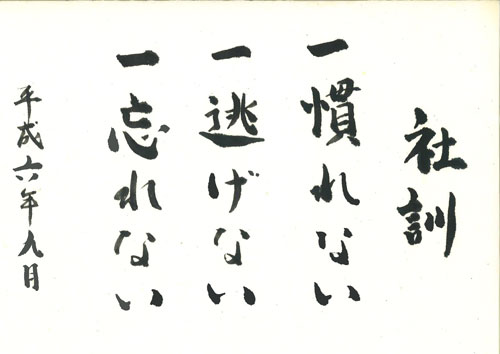 社訓
一慣れない
一逃げない
一忘れない
平成六年九月